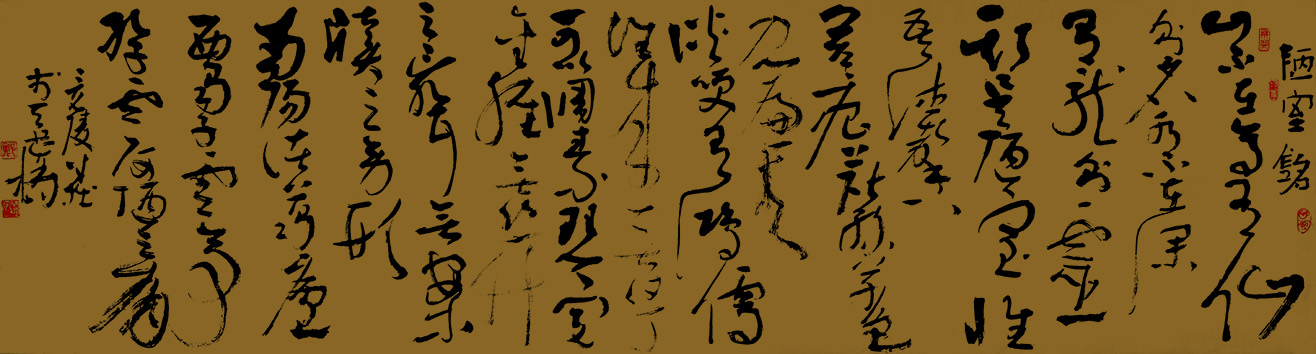 陋室銘
山不在高有仙
則名水不在深
有龍則靈
斯是陋室惟
吾德馨
苔痕上階綠草色
入簾青
談笑有鴻儒
往來無白丁
可以調素琴閱
金經無絲竹
之亂耳無案
牘之勞形
南陽諸葛廬
西蜀子雲亭
孔子云何陋之有